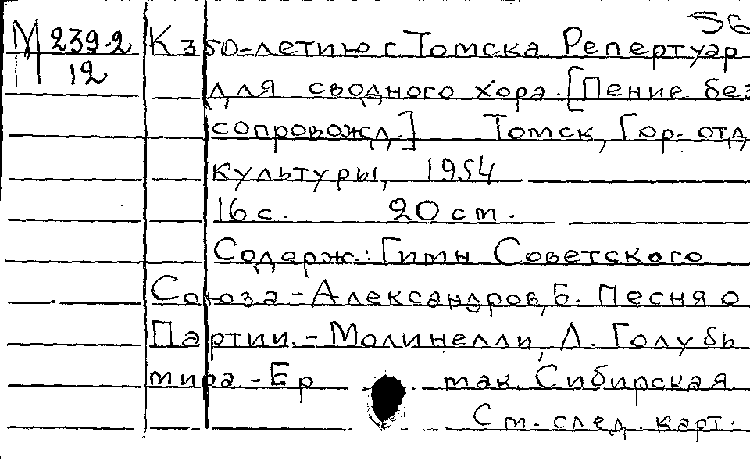 56
М 239-2 К 350-летию г. Томска Репертуар
12 для сводного хора. [Пение без
сопровожд.] Томск, Гор. отд.
культуры, 1954
16 с. 20 см.
Содерж.: Гимн Советского
Союза - Александров, Б. Песня о
Партии. - Молинелли, Л. Голубь
мира. - Ер мак. Сибирская
См. след. карт.